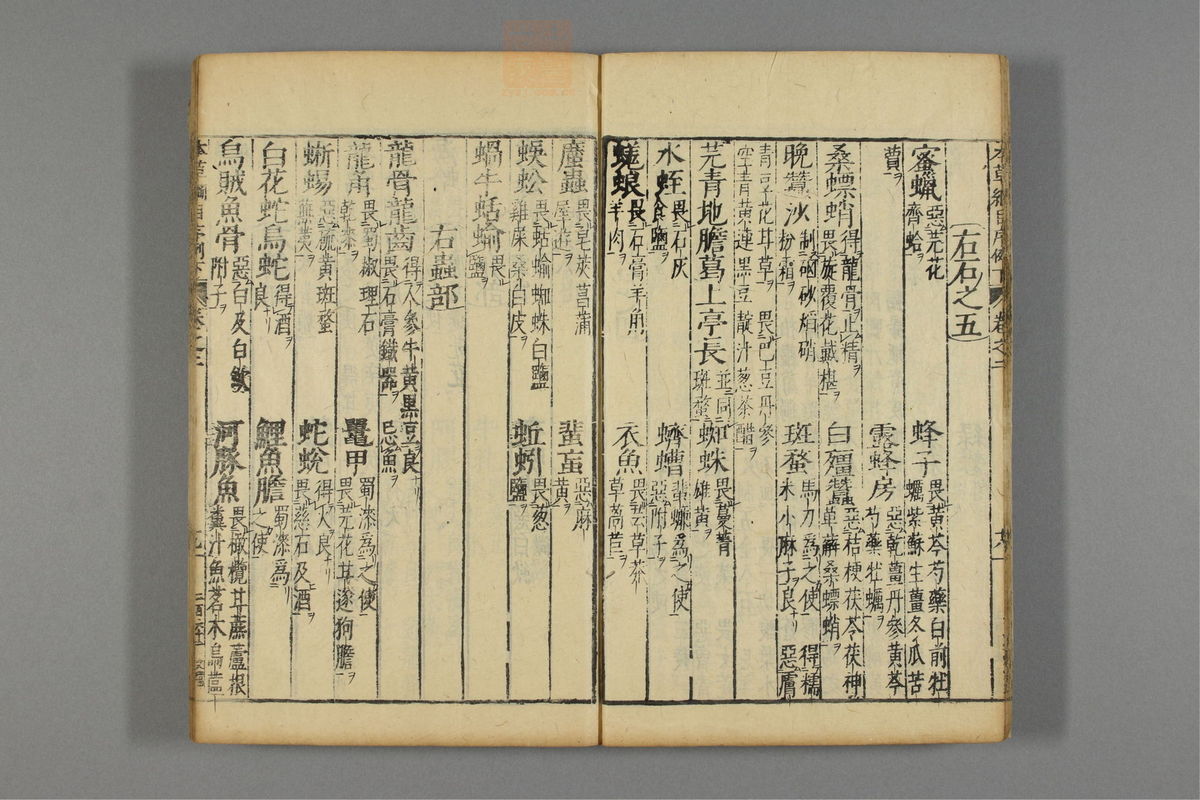 右石之五
蜜蠟 惡芫花齊蛤
蜂子 畏黃芩芍藥白前牡蠣紫蘇生薑冬瓜苦蕒
露蜂房 惡乾薑丹參黃芩芍藥牡蠣
桑螵蛸 得龍骨止精畏旋覆花戴椹
白殭蠶 惡桔梗茯苓茯神萆薢桑螵蛸
晚蠶沙 制硇砂焰硝粉霜
斑蝥 馬刀爲之使得糯米小麻子良惡膚青豆花甘草畏巴豆丹參空青黃連黑豆靛汁葱茶醋
芫青地膽葛上亭長 並同斑蝥
蜘蛛 畏蔓青雄黃
水蛭 畏石灰食鹽
蠐螬 蜚蠊爲之使惡附子
蜣蜋 畏石膏羊角羊肉
衣魚 畏芸草莽草萵苣
䗪蟲 畏皂莢菖蒲屋遊
蜚蝱 惡麻黃
蜈蚣 畏蛞蝓蜘蛛白鹽雞屎桑白皮
蚯蚓 畏葱鹽
蝸牛蛞蝓 畏鹽
右蟲部
龍骨龍齒 得人參牛黃黑豆良畏石膏鐵器忌魚
龍角 畏蜀椒理石乾漆
鼉甲 蜀漆爲之使畏芫花甘遂狗膽
蜥蜴 惡硫黃斑蝥蕪荑
蛇蛻 得火良畏慈石及酒
白花蛇烏蛇 得酒良
鯉魚膽 蜀漆爲之使
烏賊魚骨 惡白及白斂附子
河豚魚 畏橄欖甘蔗蘆根糞汁魚茗木烏蓲